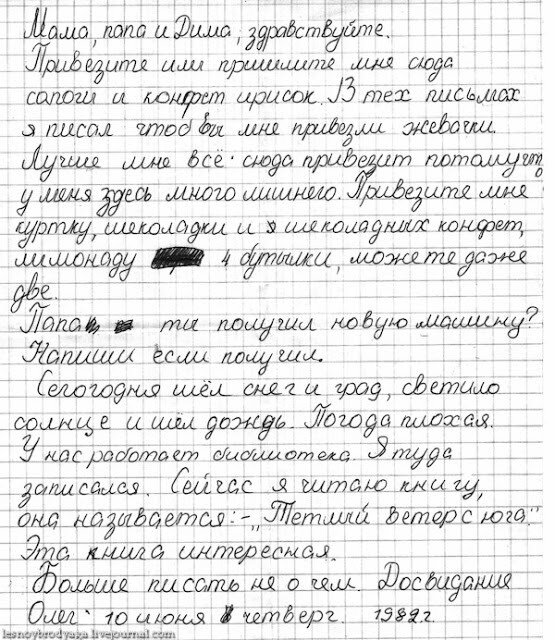 Мама, папа и Дима, здравствуйте.
Привезите или пришлите мне сюда
сапоги и конфет ирисок. В тех письмах
я писал чтоб вы мне привезли жевачки.
Лучше мне всё сюда привезит потомучто
у меня здесь много лишнего. Привезите мне
куртку, шеколадки и я шеколадных конфет,
лимонаду 4 бутылки, можете даже
две.
Папа ты получил новую машину?
Напиши если получил.
Сегогодня шёл снег и град, светило
солнце и шёл дождь. Погода плохая.
У нас работает библиотека. Я туда
записался. Сейчас я читаю книгу,
она называется:-„Тетлый ветер с юга".
Эта книга интересная.
Больше писать не о чем. Досвидание
Олег. 10 июня четверг. 1982г.
lesnoybrodyaga.livejournal.com